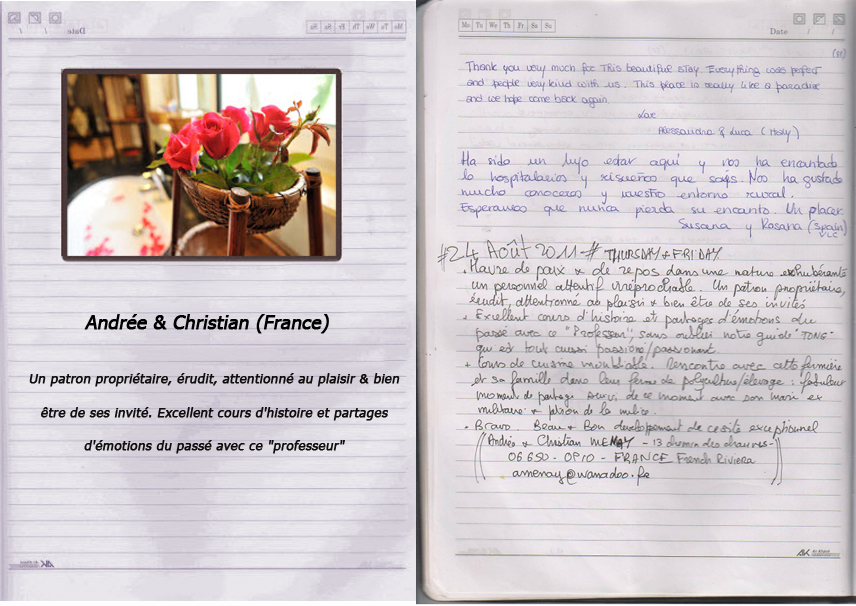 Date
Mo Tu We Th Fr Sa Su
Andrée & Christian (France)
Un patron propriétaire, érudit, attentionné au plaisir & bien
être de ses invité. Excellent cours d'histoire et partages
d'émotions du passé avec ce "professeur"
Mo Tu We Th Fr Sa Su
Date / /
Thank you very much for this beautiful stay. Everything was perfect
and people very kind with us. This place is really like a paradise
and we hope come back again.
Alessandra & Luca (Italy)
Ha sido un lujo estar aquí y nos ha encantado
lo hospitalarios y risueños que soys. Nos ha gustado
mucho conoceros y vuestro entorno rural.
Esperamos que nunca pierda su encanto. Un placer.
Susana y Rosana (Spain)
VLC
#24 Août 2011 # THURSDAY + FRIDAY
. Havre de paix & de repos dans une nature exhubérante
un personnel attentif irréprochable. Un patron propriétaire,
érudit, attentionné au plaisir & bien être de ses invités
. Excellent cours d'histoire et partages d'émotions du
passé avec ce "Professeur", sans oublier notre guide "TONG"
qui est tout aussi passioné/passionant.
+ Cours de cuisine inoubliable. Rencontre avec cette fermière
et sa famille dans leur ferme de polyculture/élevage : fabuleux
moment de partage suivi de ce moment avec son mari ex
militaire &
. Bravo. Beau & Bon développement de ce site exceptionnel
Andrée & Christian MENAY - 13 chemin des
06650 - OPIO - FRANCE French Riviera
amenay@wanadoo.fr